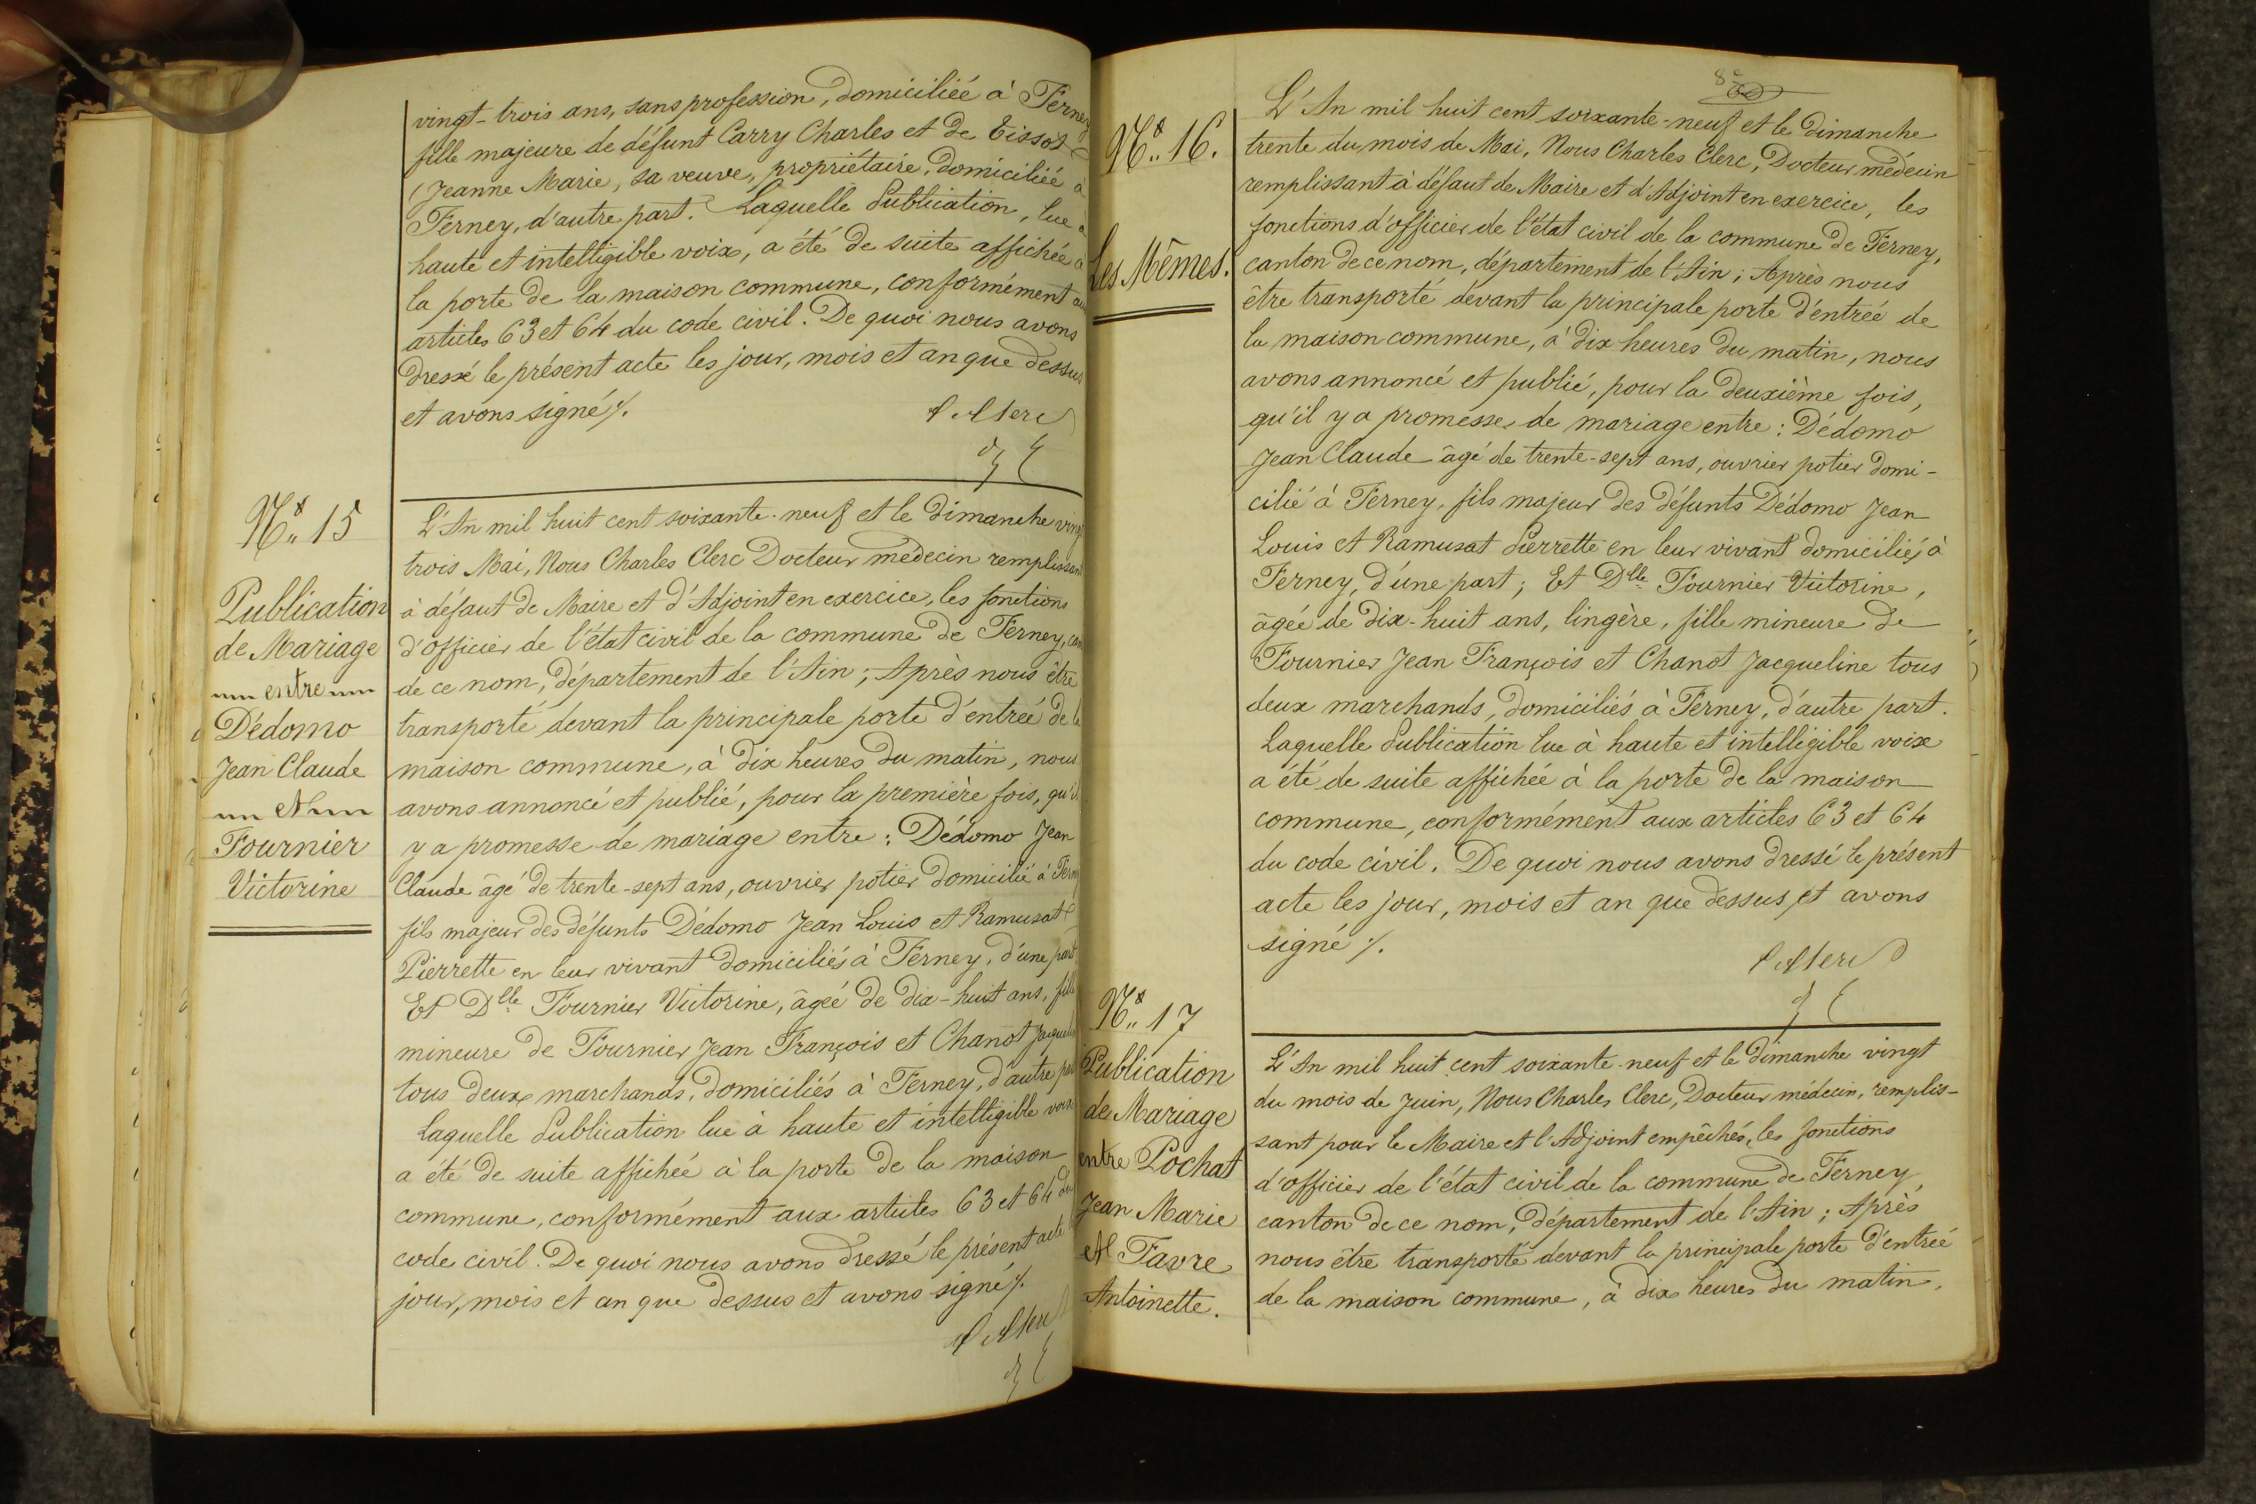 vingt-trois ans, sans profession, domiciliée à Ferney
fille majeure de défunt Carry Charles et de Tissot
Jeanne Marie, sa veuve, propriétaire, domiciliée à
Ferney, d'autre part. Laquelle Publication, lue à
haute et intelligible voix, a été de suite affichée à
la porte de la maison commune, conformément aux
articles 63 et 64 du code civil. De quoi nous avons
dressé le présent acte les jour, mois et an que dessus
et avons signé ./.
C Clerc
No. 15
Publication
de Mariage
entre
Dédomo
Jean Claude
Et
Fournier
Victorine
L'An mil huit cent soixante-neuf et le dimanche vingt
trois Mai, Nous Charles Clerc Docteur médecin remplissant
à défaut de Maire et d'Adjoint en exercice, les fonctions
d'officier de l'état civil de la commune de Ferney, can
de ce nom, département de l'Ain ; Après nous être
transporté devant la principale porte d'entrée de la
maison commune, à dix heures du matin, nous
avons annoncé et publié, pour la première fois, qu'il
y a promesse de mariage entre : Dédomo Jean
Claude âgé de trente-sept ans, ouvrier potier domicilié à Ferney
fils majeur des défunts Dédomo Jean Louis et Ramusat
Pierrette en leur vivant domiciliés à Ferney, d'une part
Et Dlle Fournier Victorine, âgée de dix-huit ans, fille
mineure de Fournier Jean François et Chanot Jacqueline
tous deux marchands, domiciliés à Ferney, d'autre part
Laquelle Publication lue à haute et intelligible voix
a été de suite affichée à la porte de la maison
commune, conformément aux articles 63 et 64 du
code civil. De quoi nous avons dressé le présent acte
jour, mois et an que dessus et avons signé ./.
C Clerc
No. 16.
Les Mêmes.
L'An mil huit cent soixante-neuf et le dimanche
trente du mois de Mai, Nous Charles Clerc, Docteur médecin
remplissant à défaut de Maire et d'Adjoint en exercice, les
fonctions d'officier de l'état civil de la commune de Ferney,
canton de ce nom, département de l'Ain ; Après nous
être transporté devant la principale porte d'entrée de
la maison commune, à dix heures du matin, nous
avons annoncé et publié, pour la deuxième fois,
qu'il y a promesse de mariage entre : Dédomo
Jean Claude âgé de trente-sept ans, ouvrier potier domi-
cilié à Ferney, fils majeur des défunts Dédomo Jean
Louis et Ramusat Pierrette en leur vivant domiciliés à
Ferney, d'une part ; Et Dlle Fournier Victorine,
âgée de dix-huit ans, lingère, fille mineure de
Fournier Jean François et Chanot Jacqueline tous
deux marchands, domiciliés à Ferney, d'autre part.
Laquelle Publication lue à haute et intelligible voix
a été de suite affichée à la porte de la maison
commune, conformément aux articles 63 et 64
du code civil. De quoi nous avons dressé le présent
acte les jour, mois et an que dessus, et avons
signé ./.
C Clerc
No. 17
Publication
de Mariage
entre Pochat
Jean Marie
et Favre
Antoinette.
L'An mil huit cent soixante-neuf et le dimanche vingt
du mois de Juin, Nous Charles Clerc, Docteur médecin, remplis-
sant pour le Maire et l'Adjoint empêchés, les fonctions
d'officier de l'état civil de la commune de Ferney,
canton de ce nom, département de l'Ain ; Après
nous être transporté devant la principale porte d'entrée
de la maison commune, à dix heures du matin,